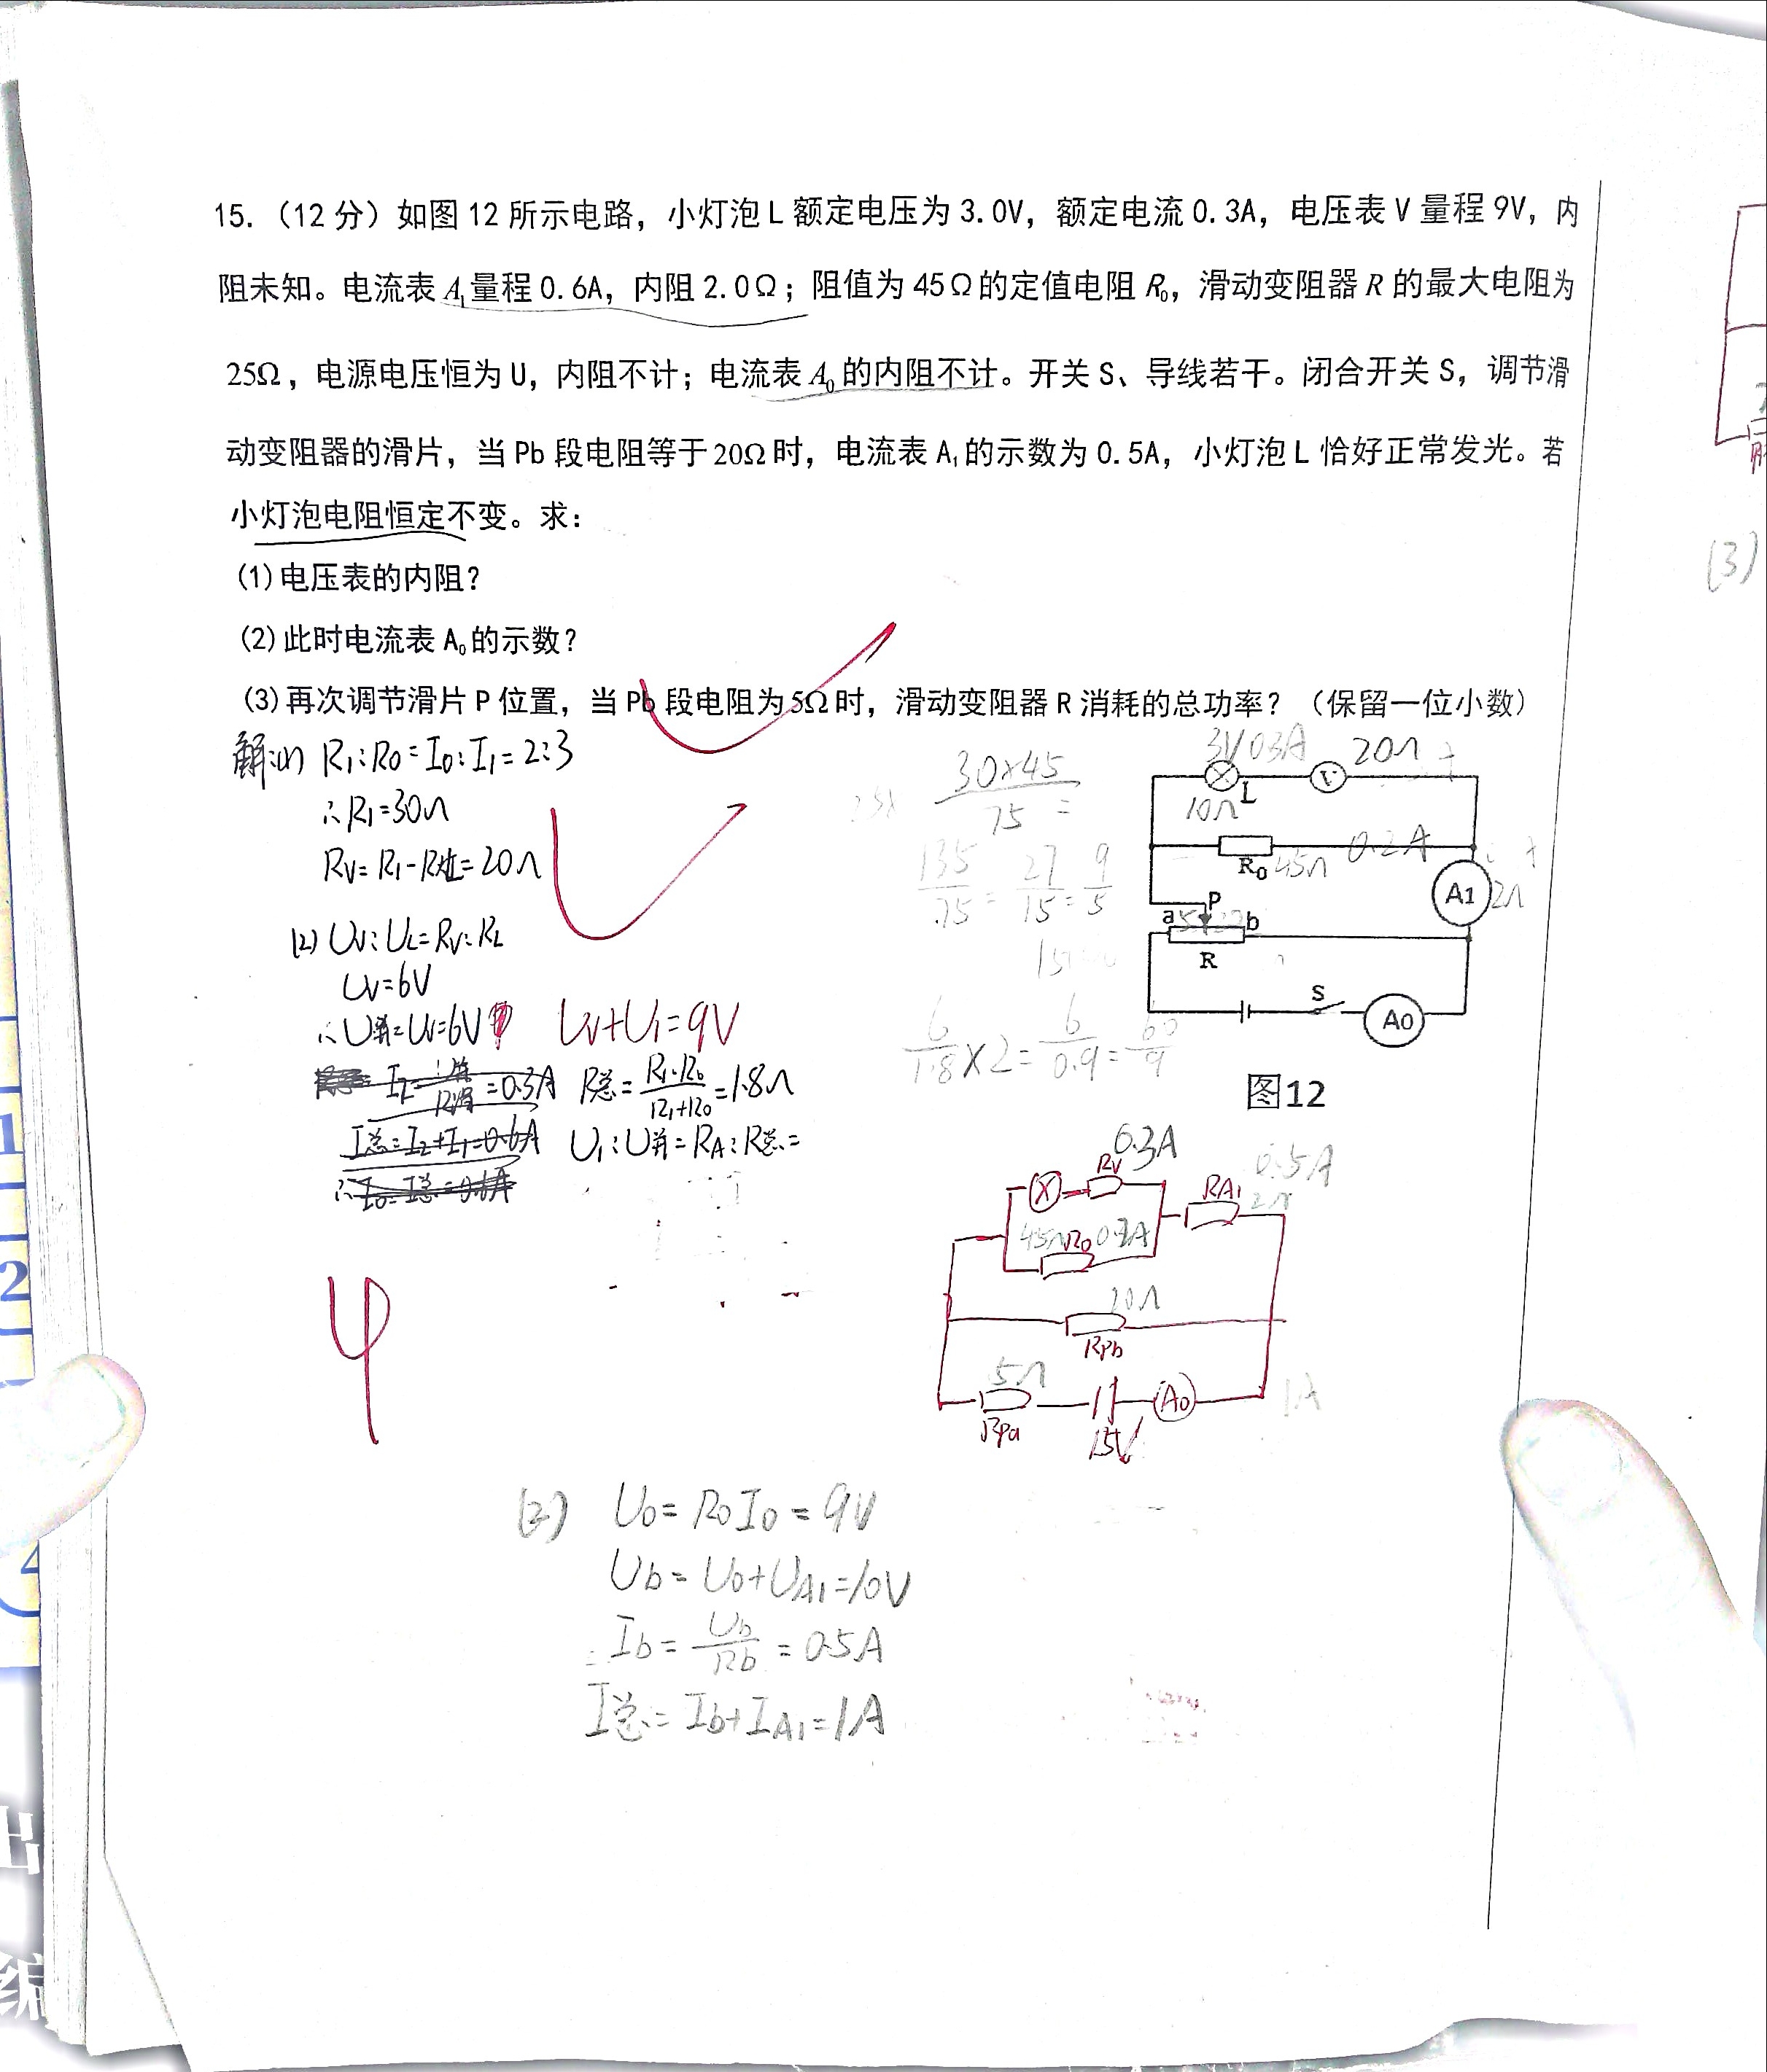 15.（12分）如图12所示电路，小灯泡L额定电压为3.0V，额定电流0.3A，电压表V量程9V，内
阻未知。电流表A₁量程0.6A，内阻2.0Ω；阻值为45Ω的定值电阻R₀，滑动变阻器R的最大电阻为
25Ω，电源电压恒为U，内阻不计；电流表A₀的内阻不计。开关S、导线若干。闭合开关S，调节滑
动变阻器的滑片，当Pb段电阻等于20Ω时，电流表A₁的示数为0.5A，小灯泡L恰好正常发光。若
小灯泡电阻恒定不变。求：
(1)电压表的内阻？
(2)此时电流表A₀的示数？
(3)再次调节滑片P位置，当Pb段电阻为5Ω时，滑动变阻器R消耗的总功率？（保留一位小数）
解:(1) R₁:R₀=I₀:I₁=2:3
∴R₁=30Ω
RV=R₁-R灯=20Ω
(2) UV:UL=RV:RL
UV=6V
∴U并=UV=6V UV+U₁=9V
R总=R₁·R₀/R₁+R₀=1.8Ω
I总=I₂+I₁=0.6A U₁:U并=RA:R总=
∴I₀=I总=0.6A
4
30×45/75=
135/75=27/15=9/5
6/1.8×2=6/0.9=60/9
3V 0.3A 20Ω
L V
10Ω
R₀ 45Ω 0.2A
A1 2Ω
P
a b
R
S
A0
图12
0.3A
RV 0.5A
RA₁ 2Ω
45Ω R₀ 0.2A
20Ω
RPb
5Ω A₀ 1A
RPa 15V
(2) U₀=R₀I₀=9V
Ub=U₀+UA₁=10V
Ib=Ub/Rb=0.5A
I总=Ib+IA₁=1A
(3)
1
2
4
出
编